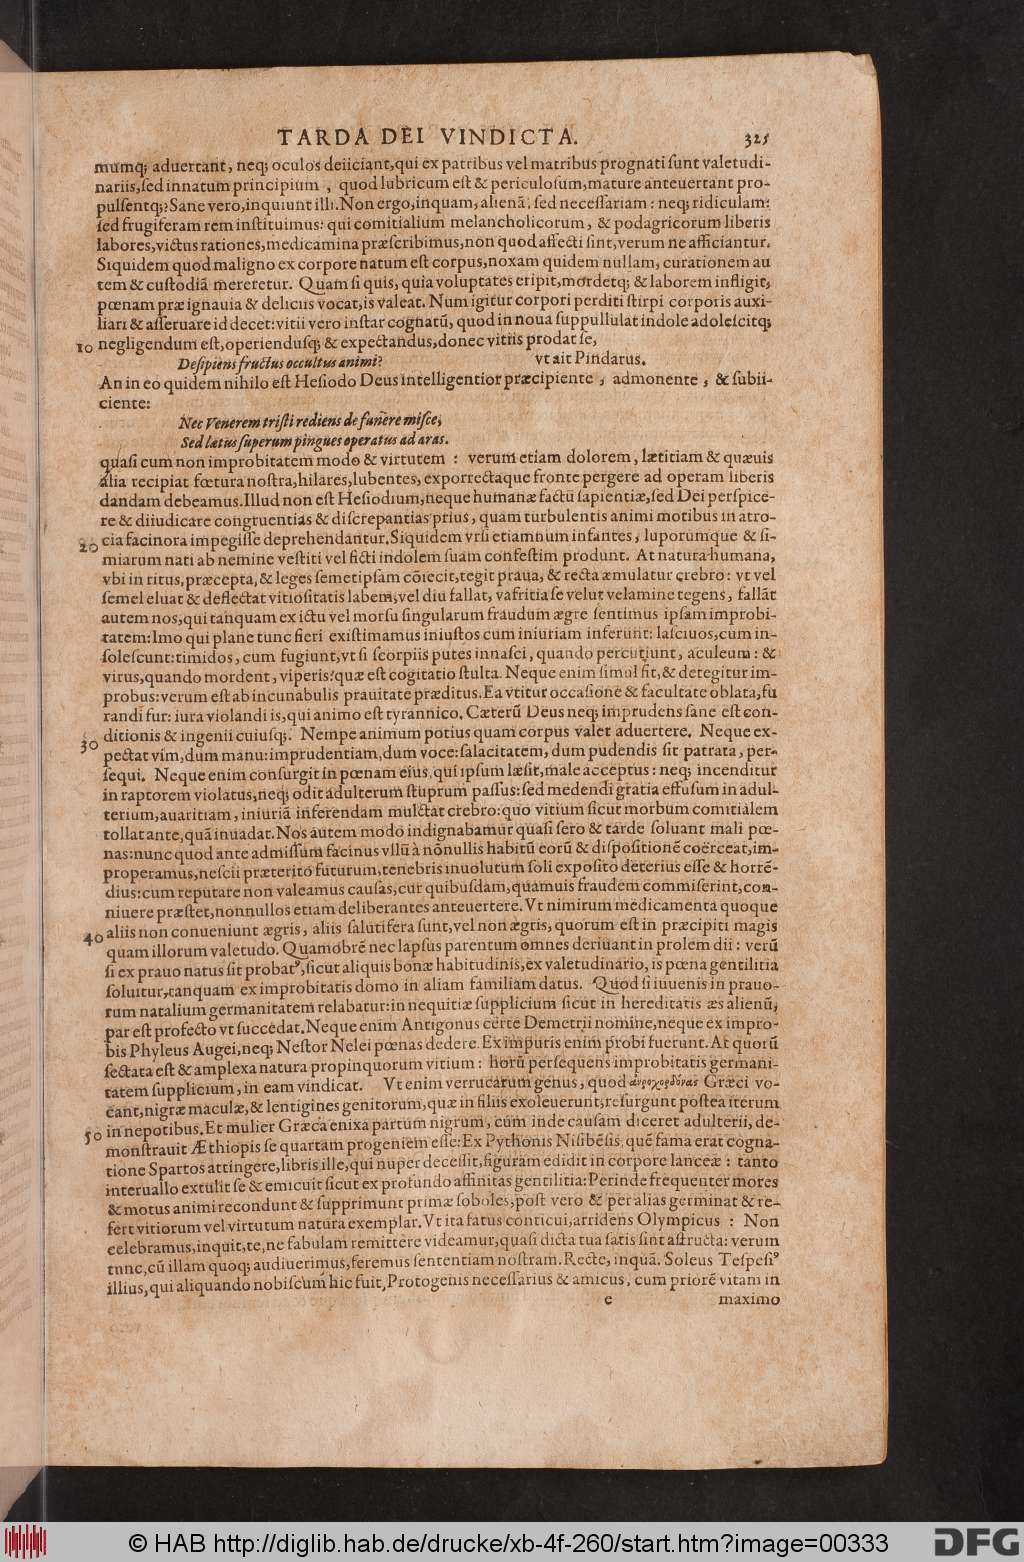 TARDA DEI VINDICTA. 325
mumq; aduertant, neq; oculos deiiciant, qui ex patribus vel matribus prognati ſunt valetudi-
nariis, ſed innatum principium, quod lubricum eſt & periculoſum, mature anteuertant pro-
pulſentq;? Sane vero, inquiunt illi. Non ergo, inquam, alienā, ſed neceſſariam: neq; ridiculam:
ſed frugiferam rem inſtituimus: qui comitialium melancholicorum, & podagricorum liberis
labores, victus rationes, medicamina præſcribimus, non quod affecti ſint, verum ne afficiantur.
Siquidem quod maligno ex corpore natum eſt corpus, noxam quidem nullam, curationem au
tem & cuſtodiā meretur. Quam ſi quis, quia voluptates eripit, mordetq; & laborem infligit,
pœnam præ ignauia & deliciis vocat, is valeat. Num igitur corpori perditi ſtirpi corporis auxi-
liari & aſſeruare id decet: vitii vero inſtar cognatū, quod in noua ſuppullulat indole adoleſcitq;
10 negligendum eſt, operiendusq; & expectandus, donec vitiis prodat ſe,
Deſipiens fructus occultus animi? vt ait Pindarus.
An in eo quidem nihilo eſt Heſiodo Deus intelligentior præcipiente, admonente, & ſubii-
ciente:
Nec Venerem triſti rediens de funere miſce,
Sed lætus ſuperum pingues operatus ad aras.
quaſi cum non improbitatem modo & virtutem: verum etiam dolorem, lætitiam & quæuis
alia recipiat fœtura noſtra, hilares, lubentes, exporrectaque fronte pergere ad operam liberis
dandam debeamus. Illud non eſt Heſiodium, neque humanæ factū ſapientiæ, ſed Dei perſpice-
re & diiudicare congruentias & diſcrepantias prius, quam turbulentis animi motibus in atro-
20 cia facinora impegiſſe deprehendantur. Siquidem vrſi etiamnum infantes, luporumque & ſi-
miarum nati ab nemine veſtiti vel ficti indolem ſuam confeſtim produnt. At natura humana,
vbi in ritus, præcepta, & leges ſemetipſam cōiecit, tegit praua, & recta æmulatur crebro: vt vel
ſemel eluat & deflectat vitioſitatis labem, vel diu fallat, vafritia ſe velut velamine tegens, fallāt
autem nos, qui tanquam ex ictu vel morſu ſingularum fraudum ægre ſentimus ipſam improbi-
tatem: Imo qui plane tunc fieri exiſtimamus iniuſtos cum iniuriam inferunt: laſciuos, cum in-
ſoleſcunt: timidos, cum fugiunt, vt ſi ſcorpiis putes innaſci, quando percutiunt, aculeum: &
virus, quando mordent, viperis: quæ eſt cogitatio ſtulta. Neque enim ſimul fit, & detegitur im-
probus: verum eſt ab incunabulis prauitate præditus. Ea vtitur occaſione & facultate oblata, fu
randi fur: iura violandi is, qui animo eſt tyrannico. Cæterū Deus neq; imprudens ſane eſt con-
ditionis & ingenii cuiuſq;. Nempe animum potius quam corpus valet aduertere. Neque ex-
30 pectat vim, dum manu: imprudentiam, dum voce: ſalacitatem, dum pudendis ſit patrata, per-
ſequi. Neque enim conſurgit in pœnam eius, qui ipſum læſit, male acceptus: neq; incenditur
in raptorem violatus, neq; odit adulterum ſtuprum paſſus: ſed medendi gratia effuſum in adul-
terium, auaritiam, iniuriā inferendam mulctat crebro: quo vitium ſicut morbum comitialem
tollat ante, quā inuadat. Nos autem modo indignabamur quaſi ſero & tarde ſoluant mali pœ-
nas: nunc quod ante admiſſum facinus vllū à nōnullis habitū eorū & diſpoſitionē coërceat, im-
properamus, neſcii præterito futurum, tenebris inuolutum ſoli expoſito deterius eſſe & horrē-
dius: cum reputare non valeamus cauſas, cur quibuſdam, quamuis fraudem commiſerint, con-
niuere præſtet, nonnullos etiam deliberantes anteuertere. Vt nimirum medicamenta quoque
40 aliis non conueniunt ægris, aliis ſalutifera ſunt, vel non ægris, quorum eſt in præcipiti magis
quam illorum valetudo. Quamobrē nec lapſus parentum omnes deriuant in prolem dii: verū
ſi ex prauo natus ſit probatꝰ, ſicut aliquis bonæ habitudinis, ex valetudinario, is pœna gentilitia
ſoluitur, tanquam ex improbitatis domo in aliam familiam datus. Quod ſi iuuenis in prauo-
rum natalium germanitatem relabatur: in nequitiæ ſupplicium ſicut in hereditatis æs alienū,
par eſt profecto vt ſuccedat. Neque enim Antigonus certe Demetrii nomine, neque ex impro-
bis Phyleus Augei, neq; Neſtor Nelei pœnas dedere. Ex impuris enim probi fuerunt. At quorū
ſectata eſt & amplexa natura propinquorum vitium: horū perſequens improbitatis germani-
tatem ſupplicium, in eam vindicat. Vt enim verrucarum genus, quod Græci vo-
cant, nigræ maculæ, & lentigines genitorum, quæ in filiis exoleuerunt, reſurgunt poſtea iterum
50 in nepotibus. Et mulier Græca enixa partum nigrum, cum inde cauſam diceret adulterii, de-
monſtrauit Æthiopis ſe quartam progeniem eſſe: Ex Pythonis Niſibēſis, quē fama erat cogna-
tione Spartos attingere, libris ille, qui nuper deceſſit, figuram edidit in corpore lanceæ: tanto
interuallo extulit ſe & emicuit ſicut ex profundo affinitas gentilitia: Perinde frequenter mores
& motus animi recondunt & ſupprimunt primæ ſoboles, poſt vero & per alias germinat & re-
fert vitiorum vel virtutum natura exemplar. Vt ita fatus conticui, arridens Olympicus: Non
celebramus, inquit, te, ne fabulam remittere videamur, quaſi dicta tua ſatis ſint aſtructa: verum
tunc, cū illam quoq; audiuerimus, feremus ſententiam noſtram. Recte, inquā. Soleus Teſpeſiꝰ
illius, qui aliquando nobiſcum hic fuit, Protogenis neceſſarius & amicus, cum priorē vitam in
e maximo
© HAB http://diglib.hab.de/drucke/xb-4f-260/start.htm?image=00333
DFG